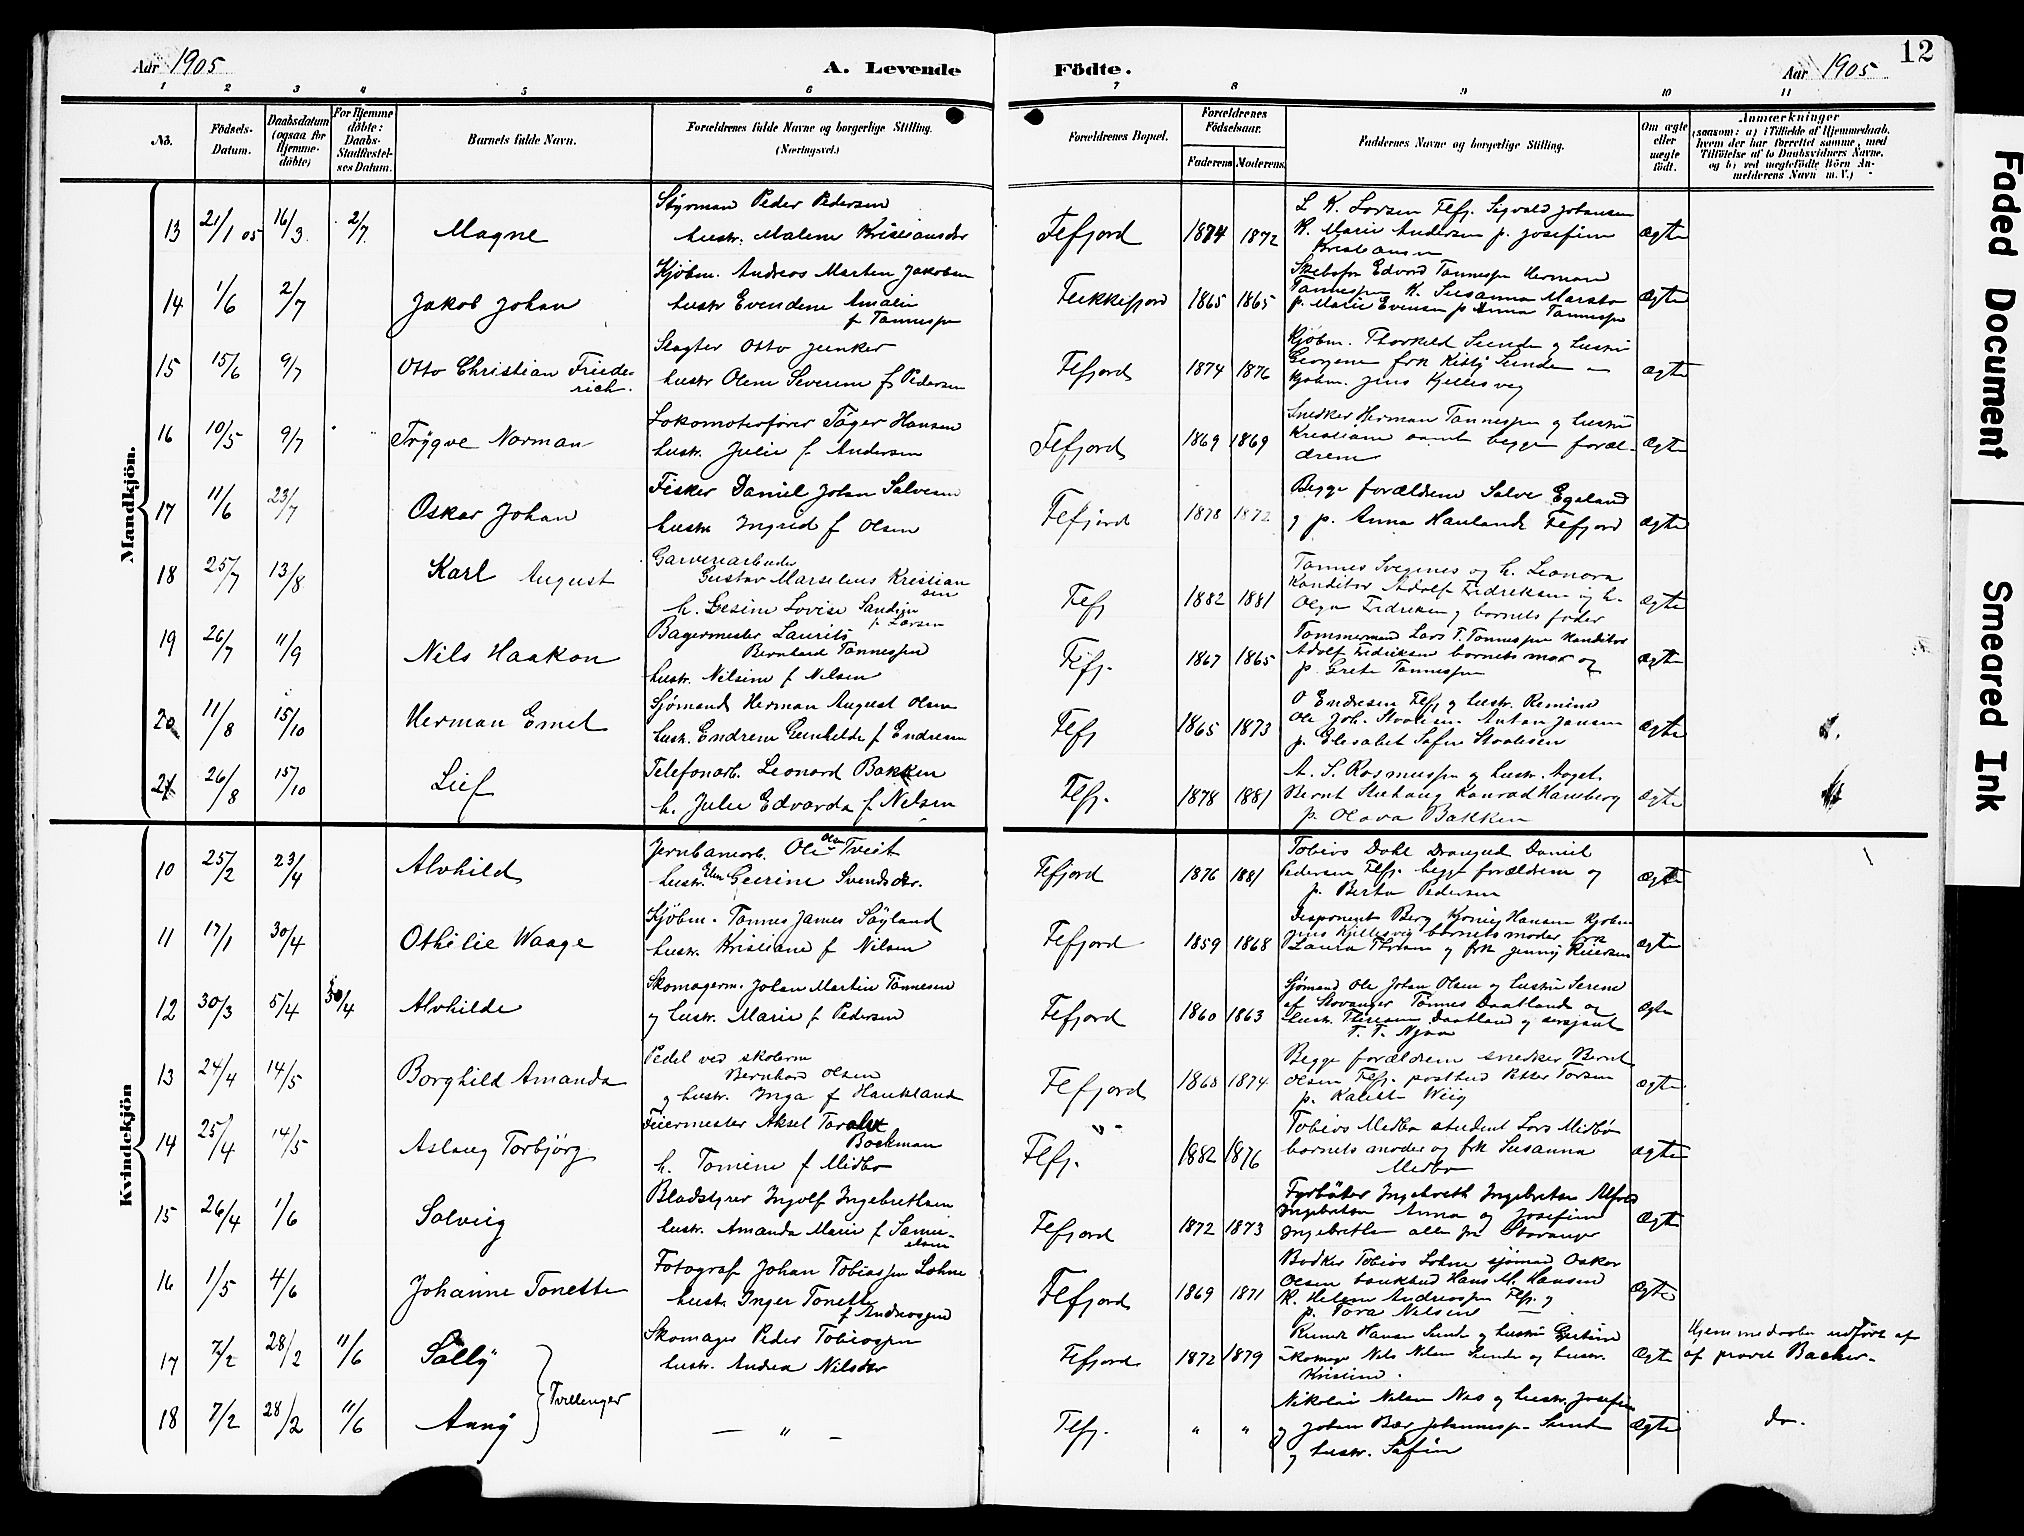 Aar 1905
A. Levende
Födte.
Aar 1905
12
1 2 3 4 5 6 7 8 9 10 11
No.
Födsels-Datum.
Daabsdatum (ogsaa for Hjemme-döbte)
For Hjemme döbte: Daabs-Stadfæstel-ses Datum.
Barnets fulde Navn.
Forældrenes fulde Navne og borgerlige Stilling.
(Næringsvei.)
Forældrenes Bopæl.
Forældrenes Födselsaar.
Faderens Moderens
Faddernes Navne og borgerlige Stilling.
Om ægte eller uægte födt.
Anmærkninger
(saasom: a) i Tilfælde af Hjemmedaab,
hvem der har forrettet samme, med
Tilföielse af to Daabsvidners Navne,
og b) ved uægtefödte Börn An-
melderens Navn m. V.)
Mandkjön.
13 21/1 05 16/3 2/7 Magne
Styrman Peder Pedersen
hustr. Malene Kristiansdtr
Flefjord 1874 1872
L. K. Larsen Flefj. Sigvald Johansen
K. Marie Andersen p. Josefine
Kristiansen
ægte
14 1/6 2/7 Jakob Johan
Kjøbm. Andreas Martin Jakobsen
hustr Evendine Amalie
f Tønnespn
Flekkefjord 1865 1865
Edvard Tønnespn Herman
Tønnespn K. Susanna
p. Marie Evensen p Anna Tønnespn
ægte
15 15/6 9/7 Otto Christian Friede-
rich.
Slagter Otto Junker
hustr Olene Severine f. Pedersen
Flefjord 1874 1876
Kjøbm. Thorkild Sunde og hustru
Georgene frk Kitty Sunde
Kjøbm. Jens Kjellesvig
ægte
16 10/5 9/7 Trygve Norman
Lokomotivfører Tøger Hansen
hustr. Julie f Andersen
Flefjord 1869 1869
Snedker Herman Tønnespn og hustru
Kristiane samt begge foræl-
drene
ægte
17 11/6 23/7 Oskar Johan
Fisker Daniel Johan Salvesen
hustr. Ingrid f Olsen
Flefjord 1878 1872
Begge forældrene Salve Egeland
og p. Anna Hauland Flefjord
ægte
18 25/7 13/8 Karl August
Garveriarbeider
Gustav Marselius Kristian
sen
h. Gesine Lovise
f. Larsen
Flefj 1882 1881
Tønnes Svegenes og h. Leonora
Konditor Adolf Fredriksen og h.
Olga Fredriksen og barnets fader
ægte
19 26/7 11/9 Nils Haakon
Bagermester Laurits
Bernhard Tønnespn
hustr. Nilsine f Nilsen
Flefj. 1867 1865
Tømmermand Lars T. Tønnespn Konditor
Adolf Fredriksen barnets mor og
p. Grete Tønnespn
ægte
20 11/8 15/10 Herman Emil
Sjømand Herman August Olsen
hustr. Endrene Gunhilde f Endresen
Flefj 1865 1873
O Endresen Flefj og hustr. Remine
Ole Joh. Anton Jansen
p. Elisabet Sofie
ægte
21 26/8 15/10 Leif
Telefonarb. Leonard Bakken
h. Julie Edvarda f Nilsen
Flefj. 1878 1881
A. S. Rasmuspn og hustr. Aaget.
Bernt Konrad Hansberg
p. Olava Bakken
ægte
Kvindekjön
10 25/2 23/4 Alvhild
Jernbanearb. Ole Olsn Tveit
hustr. Elen Geerine Svendsdtr.
Flefjord 1876 1881
Tobias Dahl Drangeid Daniel
Pedersen Flefj. begge forældrene og
p. Berta Pedersen
ægte
11 17/1 30/4 Othilie Waage
Kjøbm. Tønnes James Søyland
hustr. Kristiane f Nilsen
Flefjord 1859 1868
Disponent Berg Hansen Kjøbm
Jens Kjellesvig barnets moder frk
Laura og frk Jenny
ægte
12 30/3 5/4 30/4 Alvhilde
Skomagerm. Johan Martin Tønnesen
og hustr. Marie f Pedersen
Flefjord 1860 1863
Sjømand Ole Johan Olsen og hustru Serene
af Stavanger Tønnes Daatland og
hustr. Daatland og sersjant
T. T. Njaa
ægte
13 24/4 14/5 Borghild Amanda
Pedel ved skolerne
Bernhard Olsen
og hustr. Inga f Haukland
Flefjord 1868 1874
Begge forældrene snedker Bernt
Olsen Flefj. postbud Petter Torsen
p. Weig
ægte
14 25/4 14/5 Aslaug Torbjörg
Feiermester Aksel Taralv
Bockman
h. Tomine f Midbø
Flefj. 1882 1876
Tobias Midbø student Lars Midbø
barnets moder og frk Susanna
Midbø
ægte
15 26/4 1/6 Solveig
Bladstyrer Ingolf Ingebrethsen
hustr. Amanda Marie f Samu-
elsen
Flefjord 1872 1873
Fyrbøter Ingebreth Ingebretsen Alfred
Ingebretsen Anna og Josefine
Ingebrethsn alle fra Stavanger
ægte
16 1/5 4/6 Johanne Tonette
Fotograf Johan Tobiaspn Lohne
hustr. Inger Tonette
f Andreaspen
Flefjord 1869 1871
Bødker Tobias Lohne sjømand Oskar
Olsen bankbud Hans M. Hansen
K. Helene Andreaspn Flefj. og
p. Tora Nilsene
ægte
17 7/2 28/2 11/6 Solly
Tvillinger
Skomager Peder Tobiaspn
hustr. Andrea Nilsdtr
Flefjord 1872 1879
Hansen Sunde og hustru Gertine
skomager Nils Nilsen Sunde og hustr.
Kristine.
ægte
Hjemmedaaben udført af
af provst Bacher.
18 7/2 28/2 11/6 Anny
— " —
Flefj. " "
Nikolai Nilsen Nes og hustr. Josefine
og Johan Bær Johannespn Sunde
og hustr. Sofie
ægte
do.
Faded Document
Smeared Ink